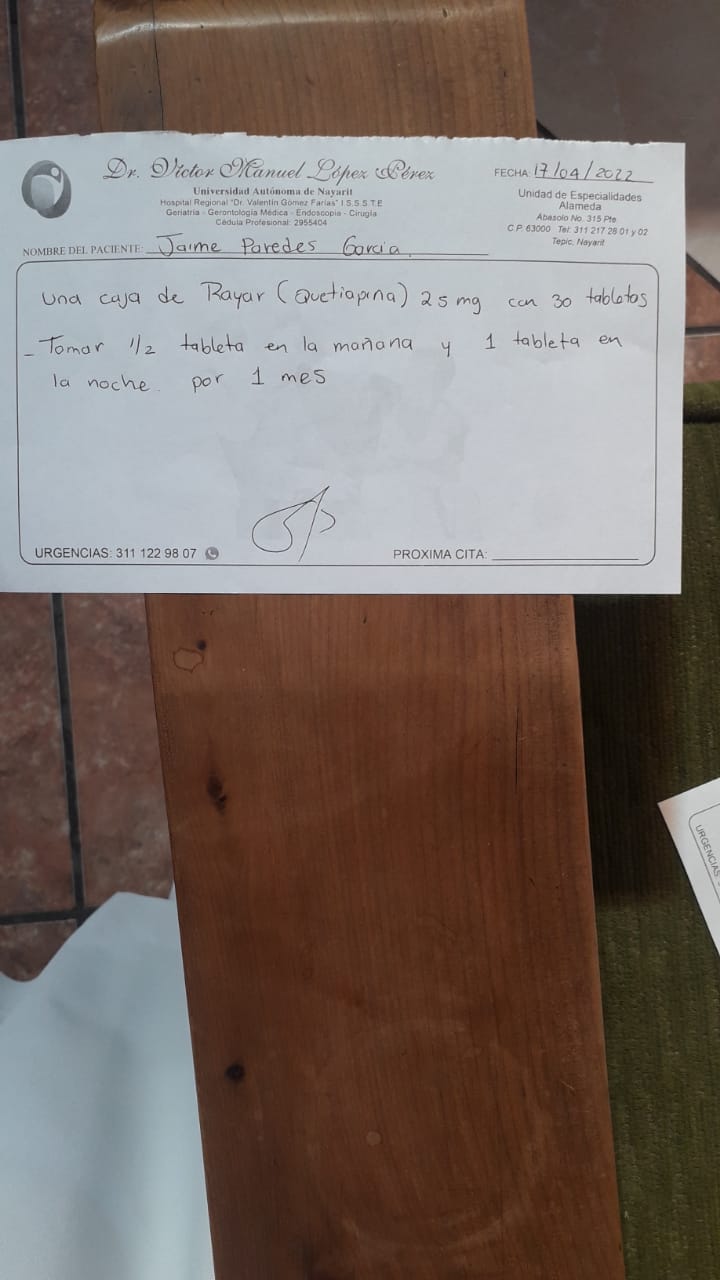 Dr. Víctor Manuel López Pérez
FECHA: 17/04/2022
Universidad Autónoma de Nayarit
Hospital Regional "Dr. Valentín Gómez Farías" I.S.S.S.T.E
Geriatría - Gerontología Médica - Endoscopía - Cirugía
Cédula Profesional: 2955404
Unidad de Especialidades
Alameda
Abasolo No. 315 Pte.
C.P. 63000 Tel: 311 217 28 01 y 02
Tepic, Nayarit
NOMBRE DEL PACIENTE: Jaime Paredes Garcia.
Una caja de Rayar (Quetiapina) 25 mg con 30 tabletas
- Tomar 1/2 tableta en la mañana y 1 tableta en
la noche. por 1 mes
URGENCIAS: 311 122 98 07
PROXIMA CITA:
URGENCIAS